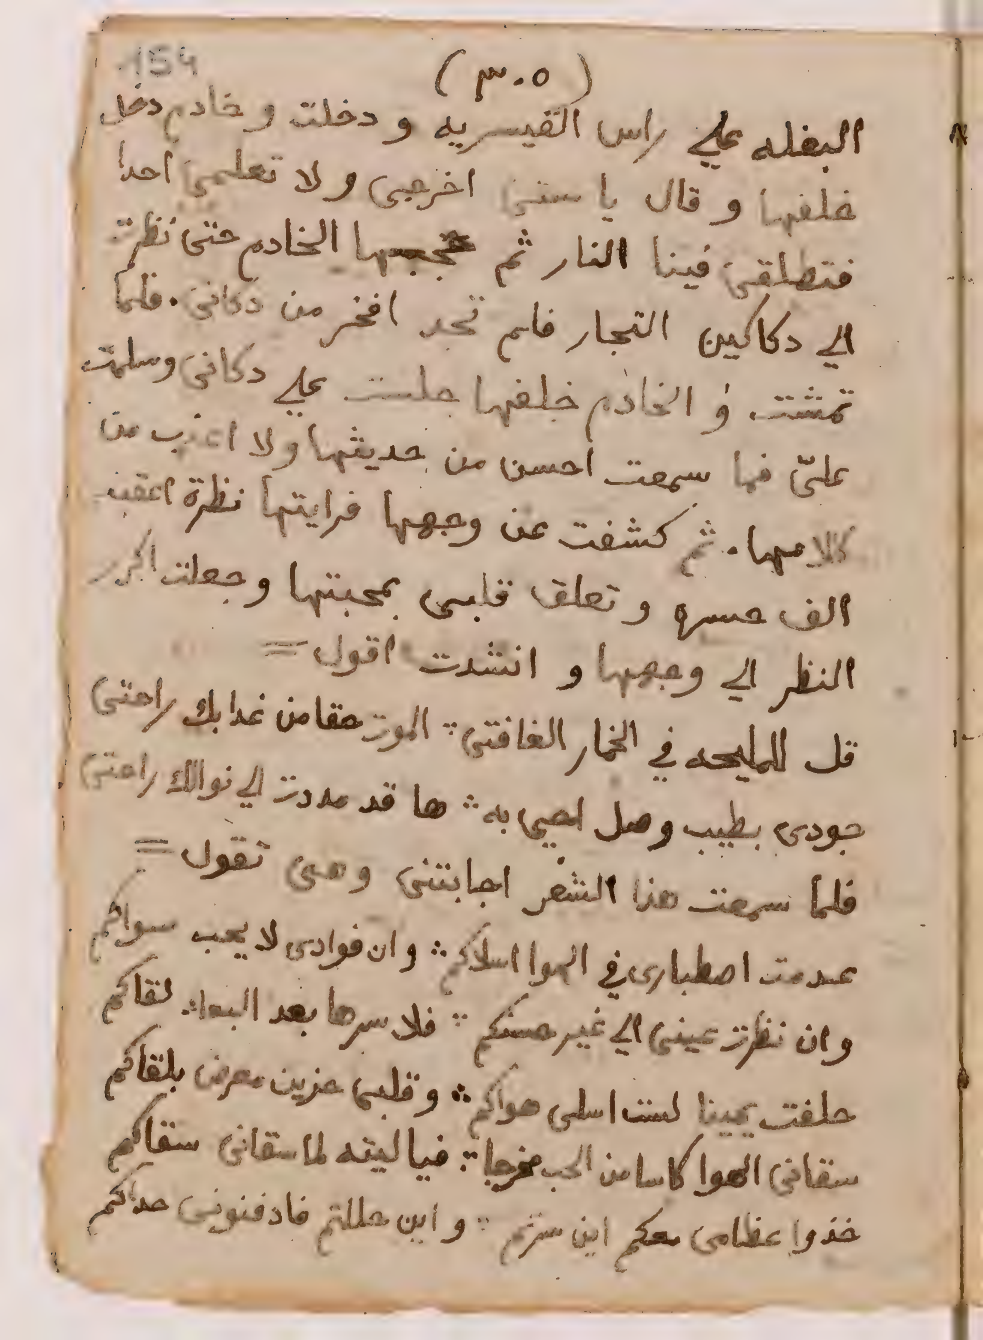 154
(٣٠٥)
البغله علي راس القيسريه و دخلت و خادم دخل
خلفها و قال يا ستي اخرجي ولا تعلمي احدا
فتطلقي فينا النار ثم حجبها الخادم حتى نظرت
الي دكاكين التجار فلم تجد افخر من دكاني. فلما
تمشت و الخادم خلفها جلست علي دكاني وسلمت
عليّ فما سمعت احسن من حديثها ولا اعذب من
كلامها. ثم كشفت عن وجهها فرايتها نظرة اعقبت
الف حسره و تعلق قلبي بمحبتها وجعلت اكرر
النظر الي وجهها و انشدت اقول =
قل للمليحه في الخمار الفاختي ؞ الموت حقا من عذابك راحتي
جودي بطيب وصل احيي به ؞ ها قد مددت الي نوالك راحتي
فلما سمعت هذا الشعر اجابتني وهي تقول =
عدمت اصطباري في الهوا اسلاكم ؞ وان فوادي لا يحب سواكم
وان نظرت عيني الي غير حسنكم ؞ فلا سرها بعد البعاد لقاكم
حلفت يمينا لست اسلي هواكم ؞ و قلبي حزين معرض بلقاكم
سقاني الهوا كاسا من الحب ؞ فيا ليته لما سقاني سقاكم
خذوا عظامي معكم اين سرتم ؞ و اين حللتم فادفنوني حداكم